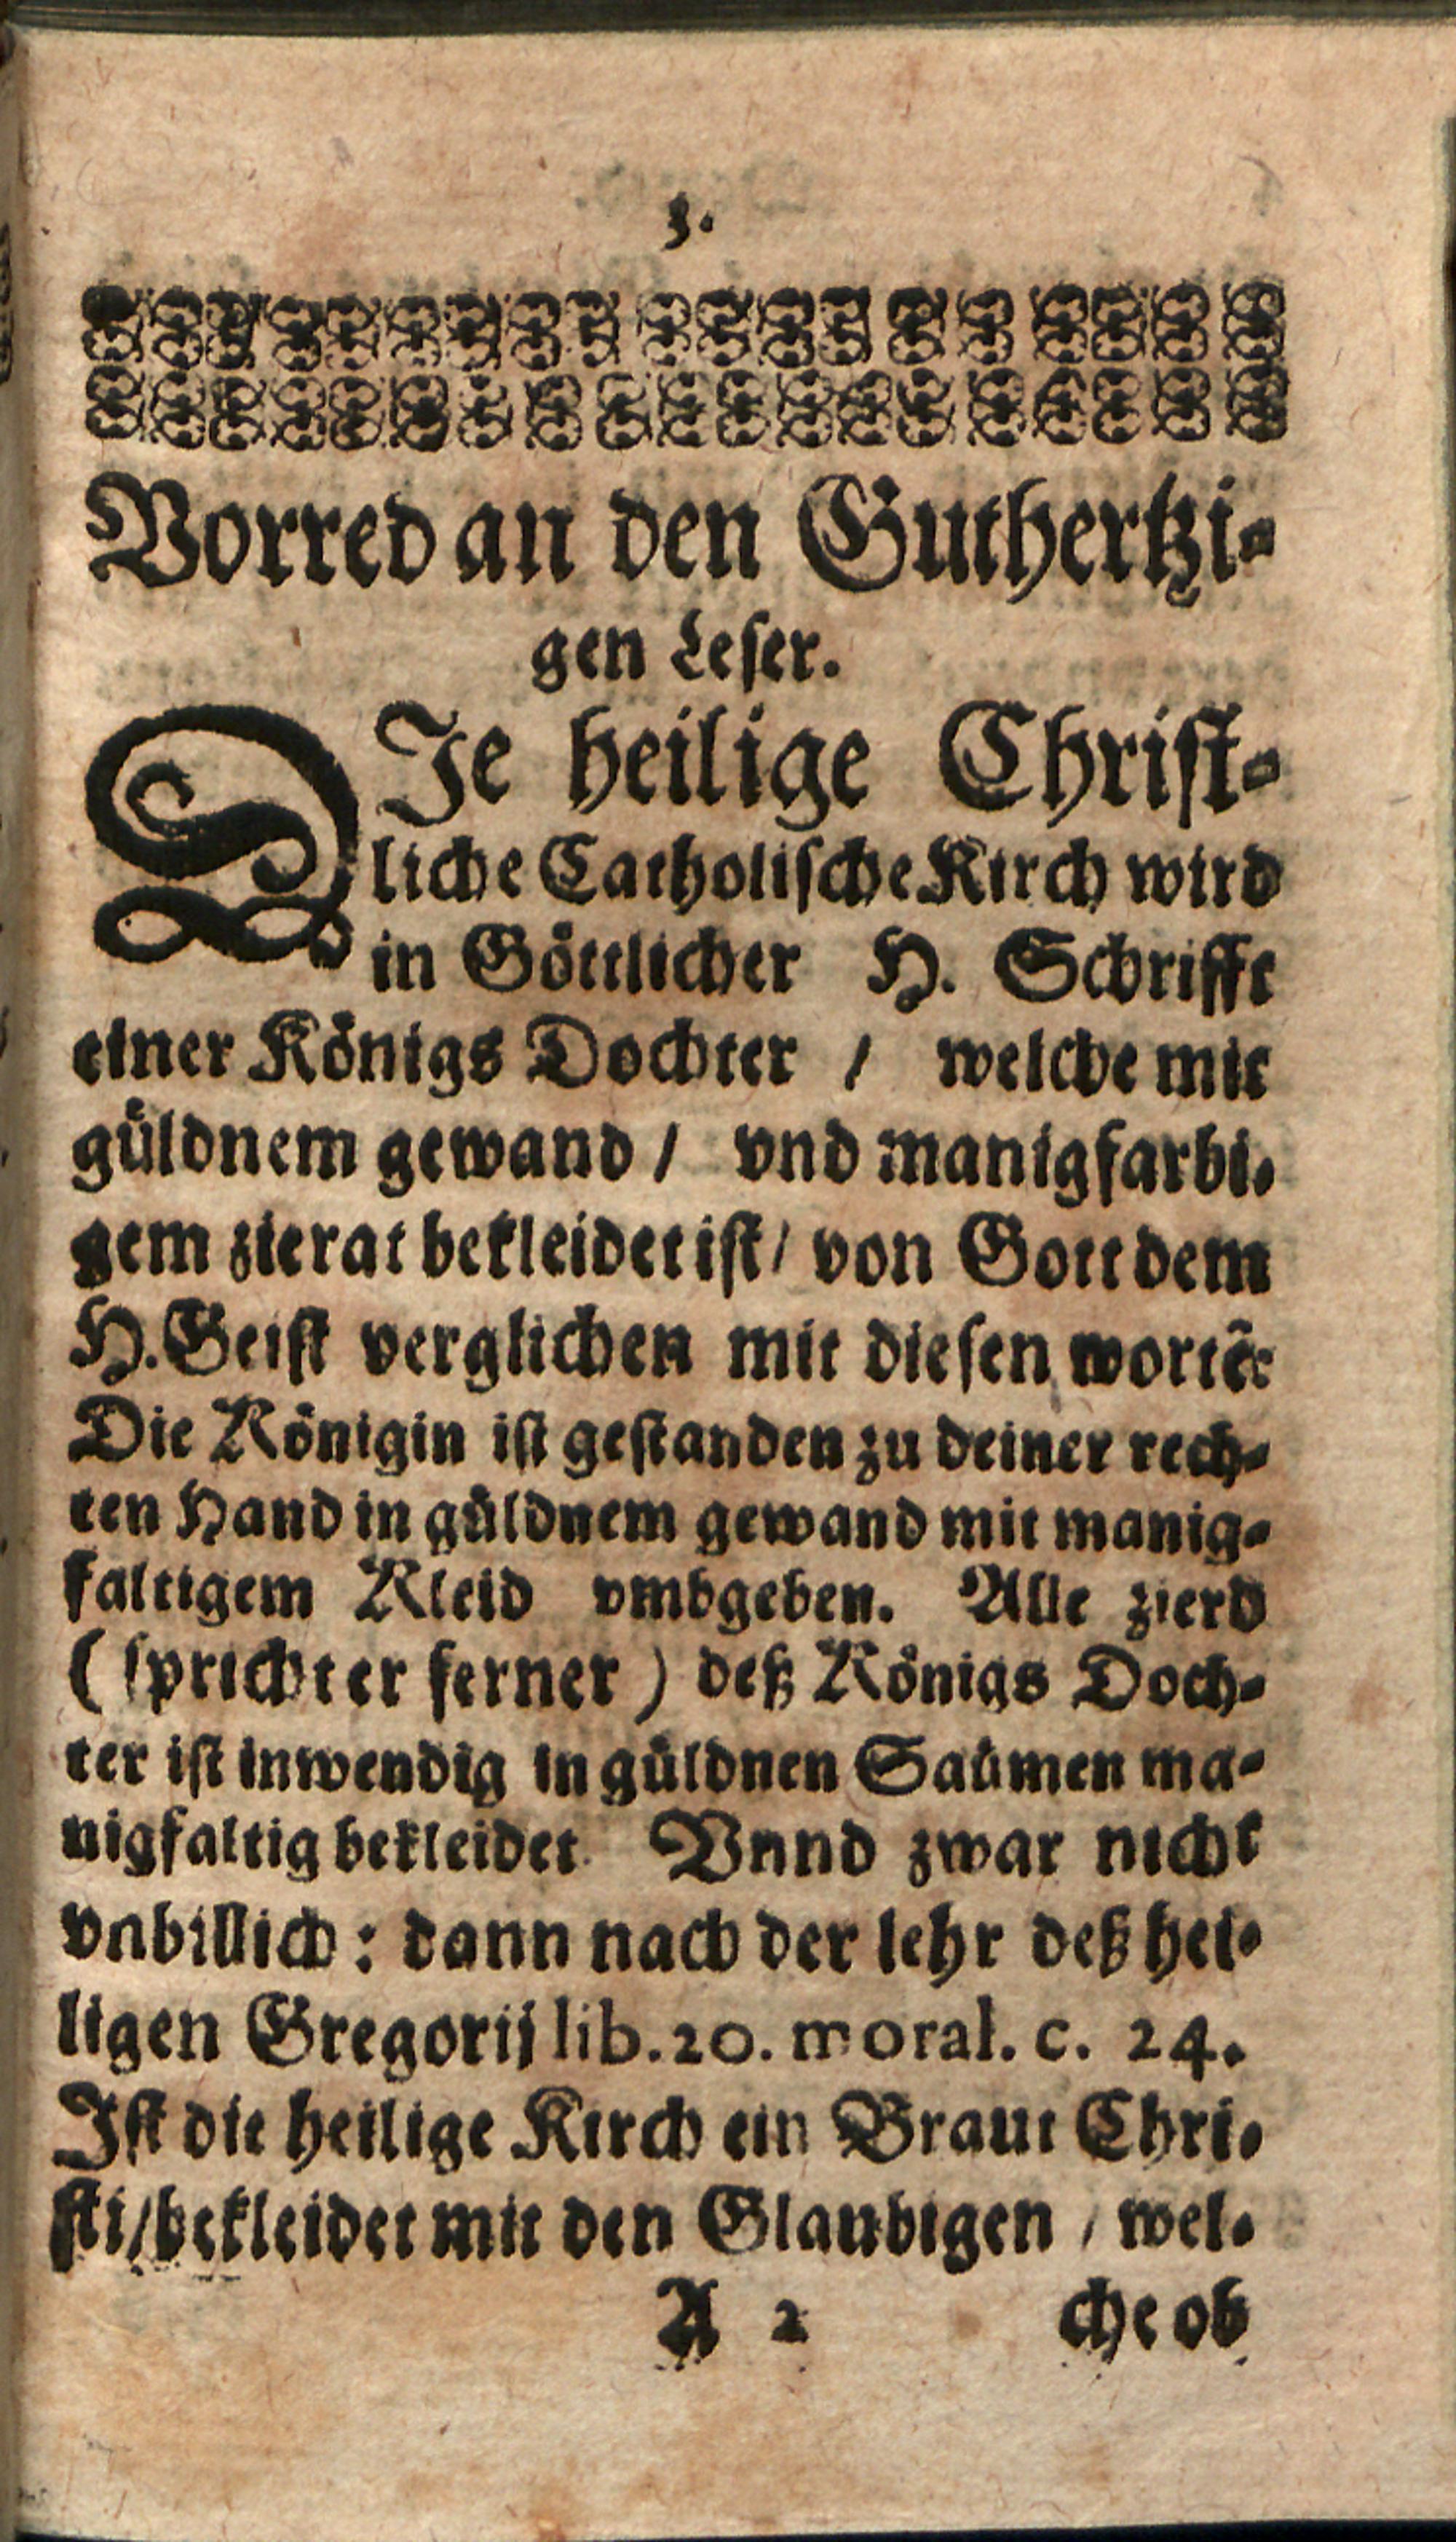 3.
Vorred an den Guthertzi-
gen Leser.
DIe heilige Christ-
liche Catholische Kirch wird
in Göttlicher H. Schrifft
einer Königs Dochter / welche mit
güldnem gewand / vnd manigfarbi-
gem zierat bekleidet ist / von Gott dem
H. Geist verglichen mit diesen wortẽ:
Die Königin ist gestanden zu deiner rech-
ten Hand in güldnem gewand mit manig-
faltigem Kleid vmbgeben. Alle zierd
( spricht er ferner ) deß Königs Doch-
ter ist inwendig in güldnen Saümen ma-
nigfaltig bekleidet. Vnnd zwar nicht
vnbillich : dann nach der lehr deß hei-
ligen Gregorij lib. 20. moral. c. 24.
Ist die heilige Kirch ein Braut Chri-
sti / bekleidet mit den Glaubigen / wel-
A 2 che ob